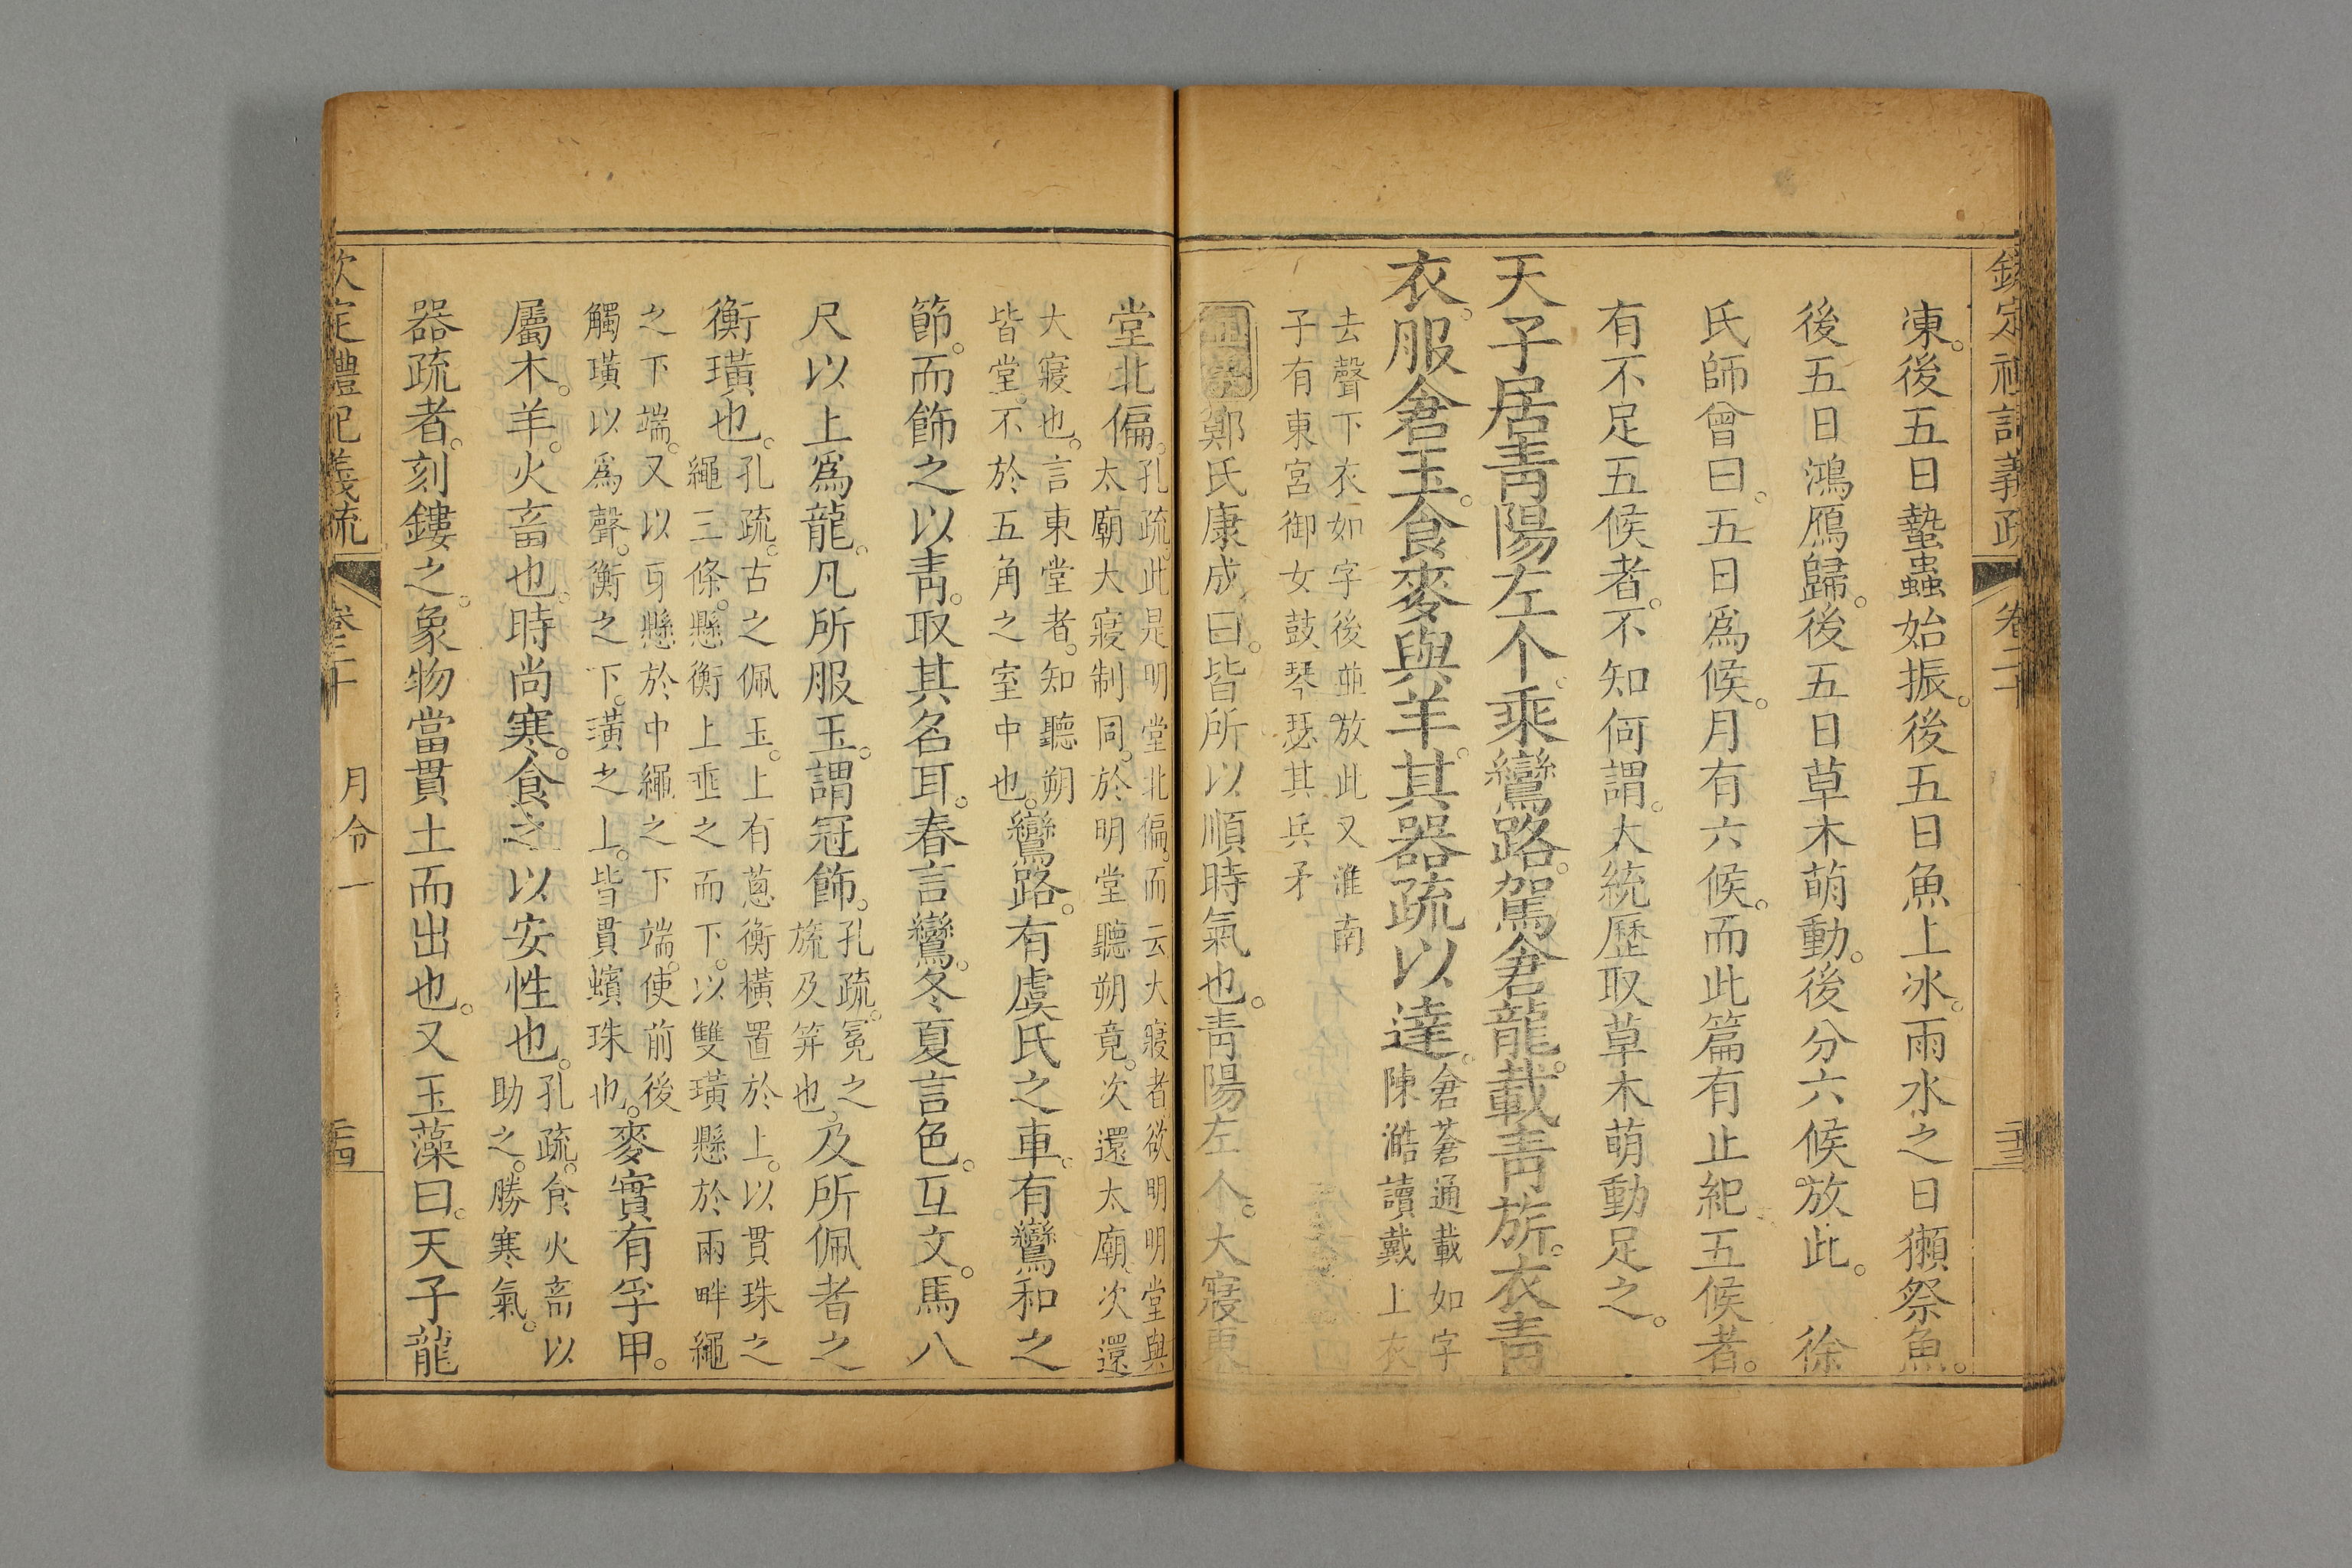 欽定禮記義疏 卷二十
凍。後五日蟄蟲始振。後五日魚上冰。雨水之日獺祭魚。
後五日鴻鴈歸。後五日草木萌動。後分六候放此。 徐
氏師曾曰。五日爲候。月有六候。而此篇有止紀五候者。
有不足五候者。不知何謂。大統歷取草木萌動足之。
天子居青陽左个。乘鸞路。駕倉龍。載青旂。衣青
衣。服倉玉。食麥與羊。其器疏以達。
倉蒼通載如字
陳澔讀戴上衣
去聲下衣如字後並放此又淮南
子有東宮御女鼓琴瑟其兵矛
正義 鄭氏康成曰。皆所以順時氣也。青陽左个。大寢東
堂北偏。
孔疏。此是明堂北偏。而云大寢者。欲明明堂與
太廟大寢制同。於明堂聽朔竟。次還太廟。次還
大寢也。言東堂者。知聽朔
皆堂。不於五角之室中也。
鸞路。有虞氏之車。有鸞和之
節。而飾之以青。取其名耳。春言鸞。冬夏言色。互文。馬八
尺以上爲龍。凡所服玉。謂冠飾。
孔疏。冕之
旒及笄也。
及所佩者之
衡璜也。
孔疏。古之佩玉。上有蔥衡橫置於上。以貫珠之
繩三條。懸衡上垂之而下。以雙璜懸於兩畔繩
之下端。又以牙懸於中繩之下端。使前後
觸璜以爲聲。衡之下。璜之上。皆貫蠙珠也。
麥實有孚甲。
屬木。羊。火畜也。時尚寒。食之以安性也。
孔疏。食火畜以
助之。勝寒氣。
器疏者。刻鏤之。象物當貫土而出也。又玉藻曰。天子龍
欽定禮記義疏 卷二十 月令一 二十四